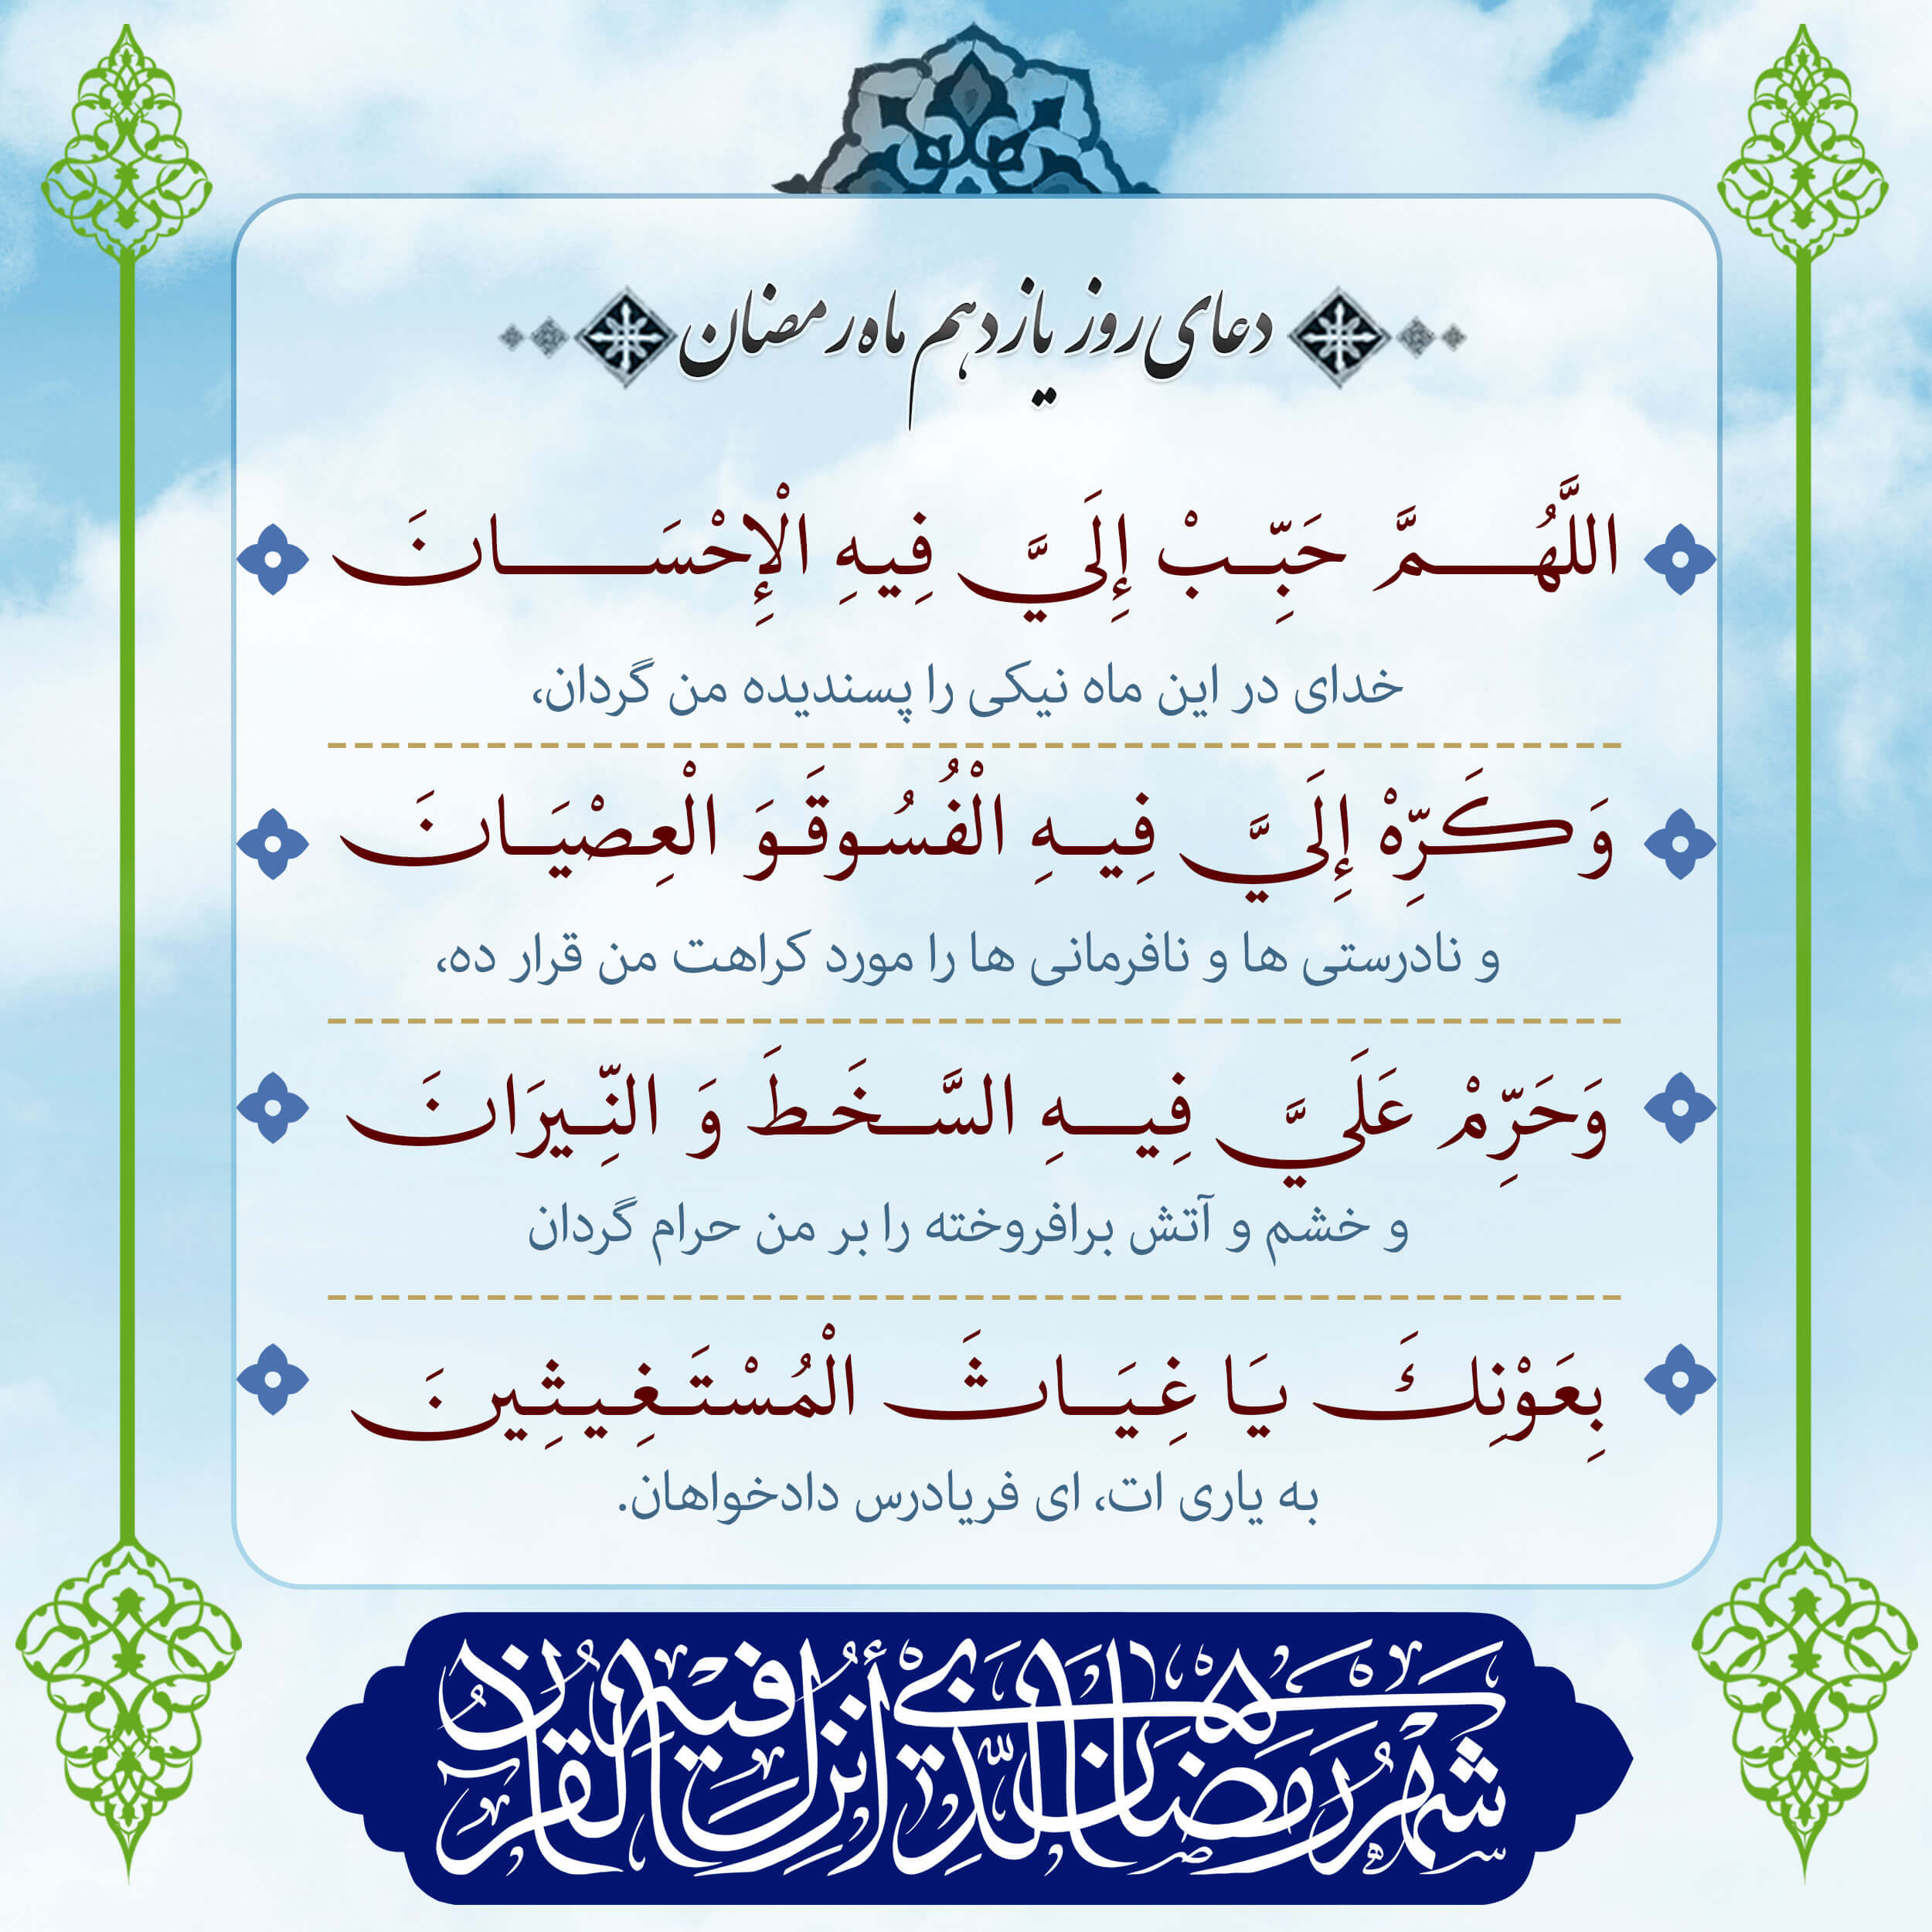 دعای روز یازدهم ماه رمضان
اللَّهُمَّ حَبِّبْ إِلَيَّ فِيهِ الْإِحْسَانَ
خدای در این ماه نیکی را پسندیده من گردان،
وَكَرِّهْ إِلَيَّ فِيهِ الْفُسُوقَوَ الْعِصْيَانَ
و نادرستی ها و نافرمانی ها را مورد کراهت من قرار ده،
وَحَرِّمْ عَلَيَّ فِيهِ السَّخَطَ وَ النِّيرَانَ
و خشم و آتش برافروخته را بر من حرام گردان
بِعَوْنِكَ يَا غِيَاثَ الْمُسْتَغِيثِينَ
به یاری ات، ای فریادرس دادخواهان.
شَهْرُ رَمَضَانَ الَّذِي أُنْزِلَ فِيهِ الْقُرْآنُ